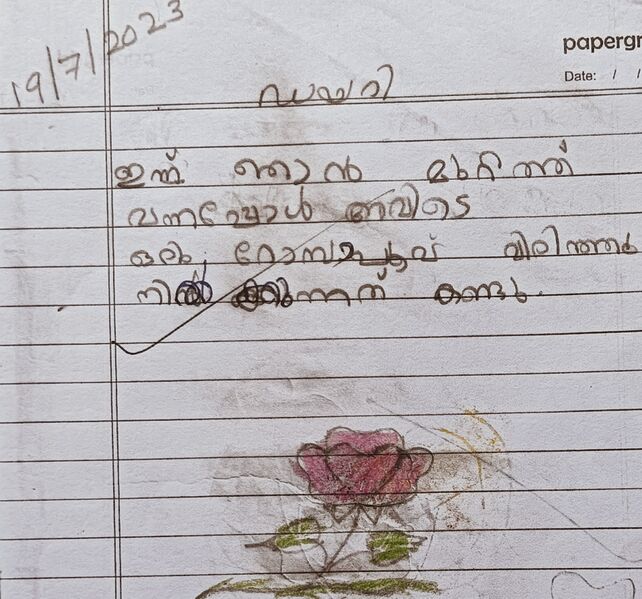 19/7/2023
papergr
Date: / /
ഡയറി
ഇന്ന് ഞാൻ മുറ്റത്ത്
വന്നപ്പോൾ അവിടെ
ഒരു റോസാപൂവ് വിരിഞ്ഞു
നിൽ ക്കുന്നത് കണ്ടു.